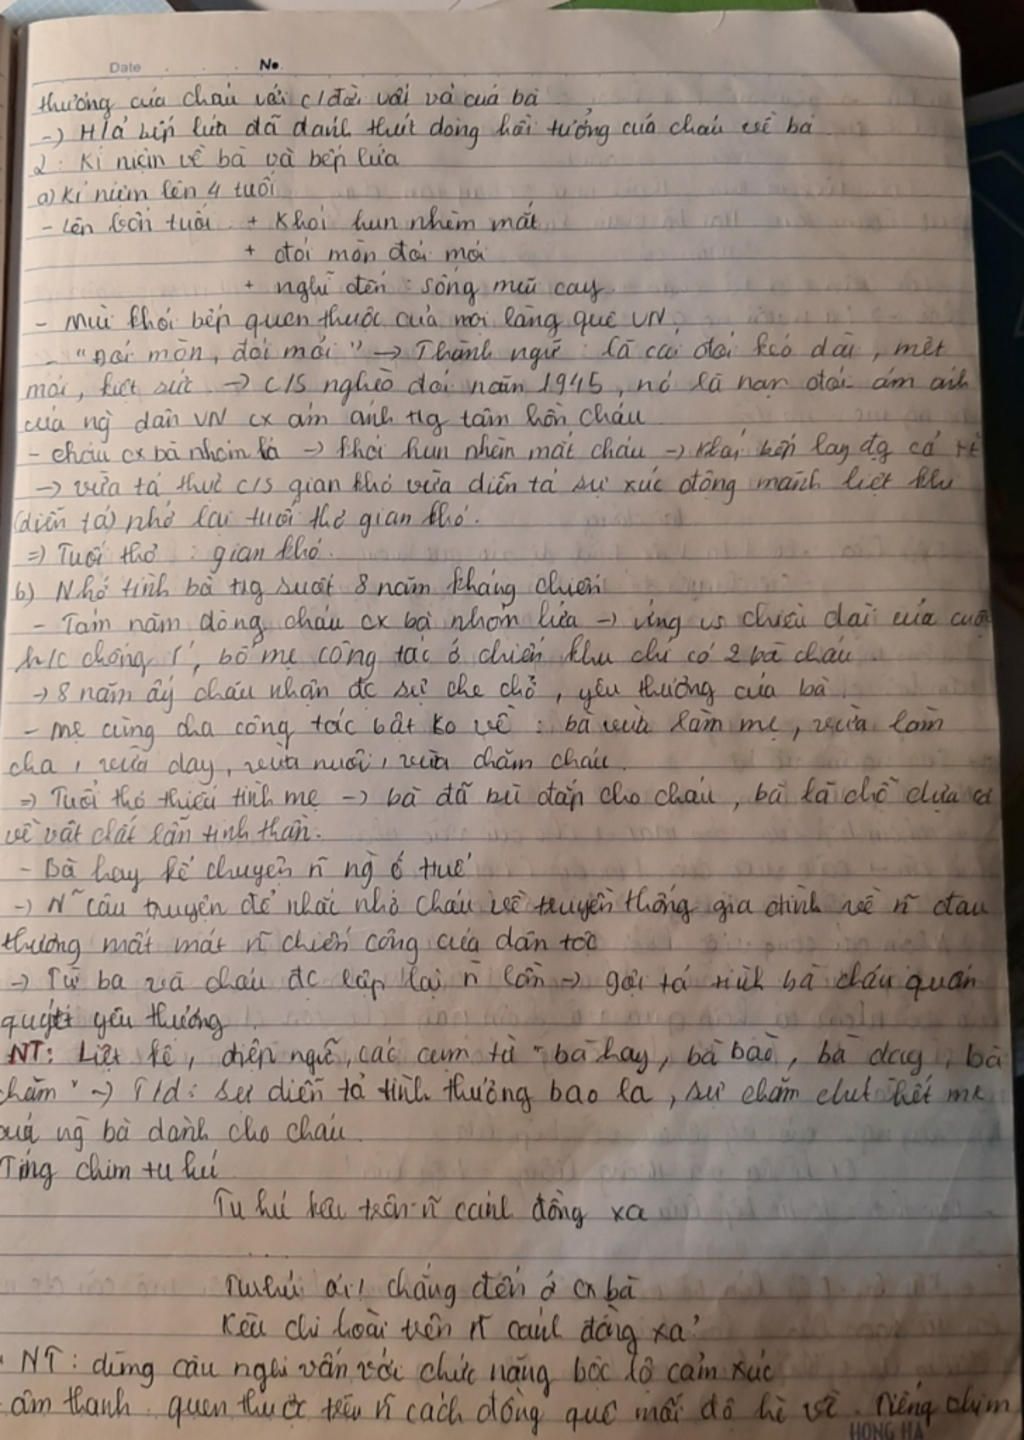 Date No
thương của cháu với c/đời vất vả của bà
-> H/ả bếp lửa đã đánh thức dòng hồi tưởng của cháu về bà
2. Kỉ niệm về bà và bếp lửa
a) Kỉ niệm lên 4 tuổi
- Lên bốn tuổi : + Khói hun nhèm mắt
+ đói mòn đói mỏi
+ nghĩ đến : sống mũi cay
- Mùi khói bếp quen thuộc của mọi làng quê VN.
- "Đói mòn, đói mỏi" -> Thành ngữ : là cái đói kéo dài, mệt
mỏi, kiệt sức -> c/s nghèo đói năm 1945, nó là nạn đói ám ảnh
của ng dân VN cx ám ảnh tg tâm hồn cháu
- cháu cx bà nhóm -> khói hun nhèm mắt cháu -> khói bếp lay đg cả
-> vừa tả thực c/s gian khó vừa diễn tả sự xúc động mãnh liệt khi
(diễn tả) nhớ lại tuổi thơ gian khó.
=> Tuổi thơ : gian khó.
b) Nhớ tình bà tg suốt 8 năm kháng chiến
- Tám năm dòng cháu cx bà nhóm lửa -> ứng vs chiều dài của cuộc
k/c chống P', bố mẹ công tác ở chiến khu chỉ có 2 bà cháu.
-> 8 năm ấy cháu nhận đc sự che chở, yêu thương của bà.
- mẹ cùng cha công tác bật ko về : bà vừa làm mẹ, vừa làm
cha, vừa dạy, vừa nuôi, vừa chăm cháu.
=> Tuổi thơ thiếu tình mẹ -> bà đã bù đắp cho cháu, bà là chỗ dựa cả
về vật chất lẫn tinh thần.
- Bà hay kể chuyện n~ ng ở Huế
-> N~ câu truyện để nhắc nhở cháu về truyền thống gia đình về n~ đau
thương mất mát n~ chiến công của dân tộc
-> Từ bà và cháu đc lặp lại n` lần -> gợi tả tình bà cháu quấn
quýt yêu thương.
NT: Liệt kê, điệp ngữ, các cụm từ "bà hay, bà bảo, bà dạy, bà
chăm" -> T/d: sự diễn tả tình thương bao la, sự chăm chút hết mk
của ng bà dành cho cháu.
Tiếng chim tu hú
Tu hú kêu trên n~ cánh đồng xa
Tu hú ơi! chẳng đến ở cx bà
Kêu chi hoài trên n~ cánh đồng xa?
NT: dùng câu nghi vấn với chức năng bộc lộ cảm xúc
âm thanh quen thuộc trên n~ cách đồng quê mỗi độ hè về. Tiếng chim
HONG HA